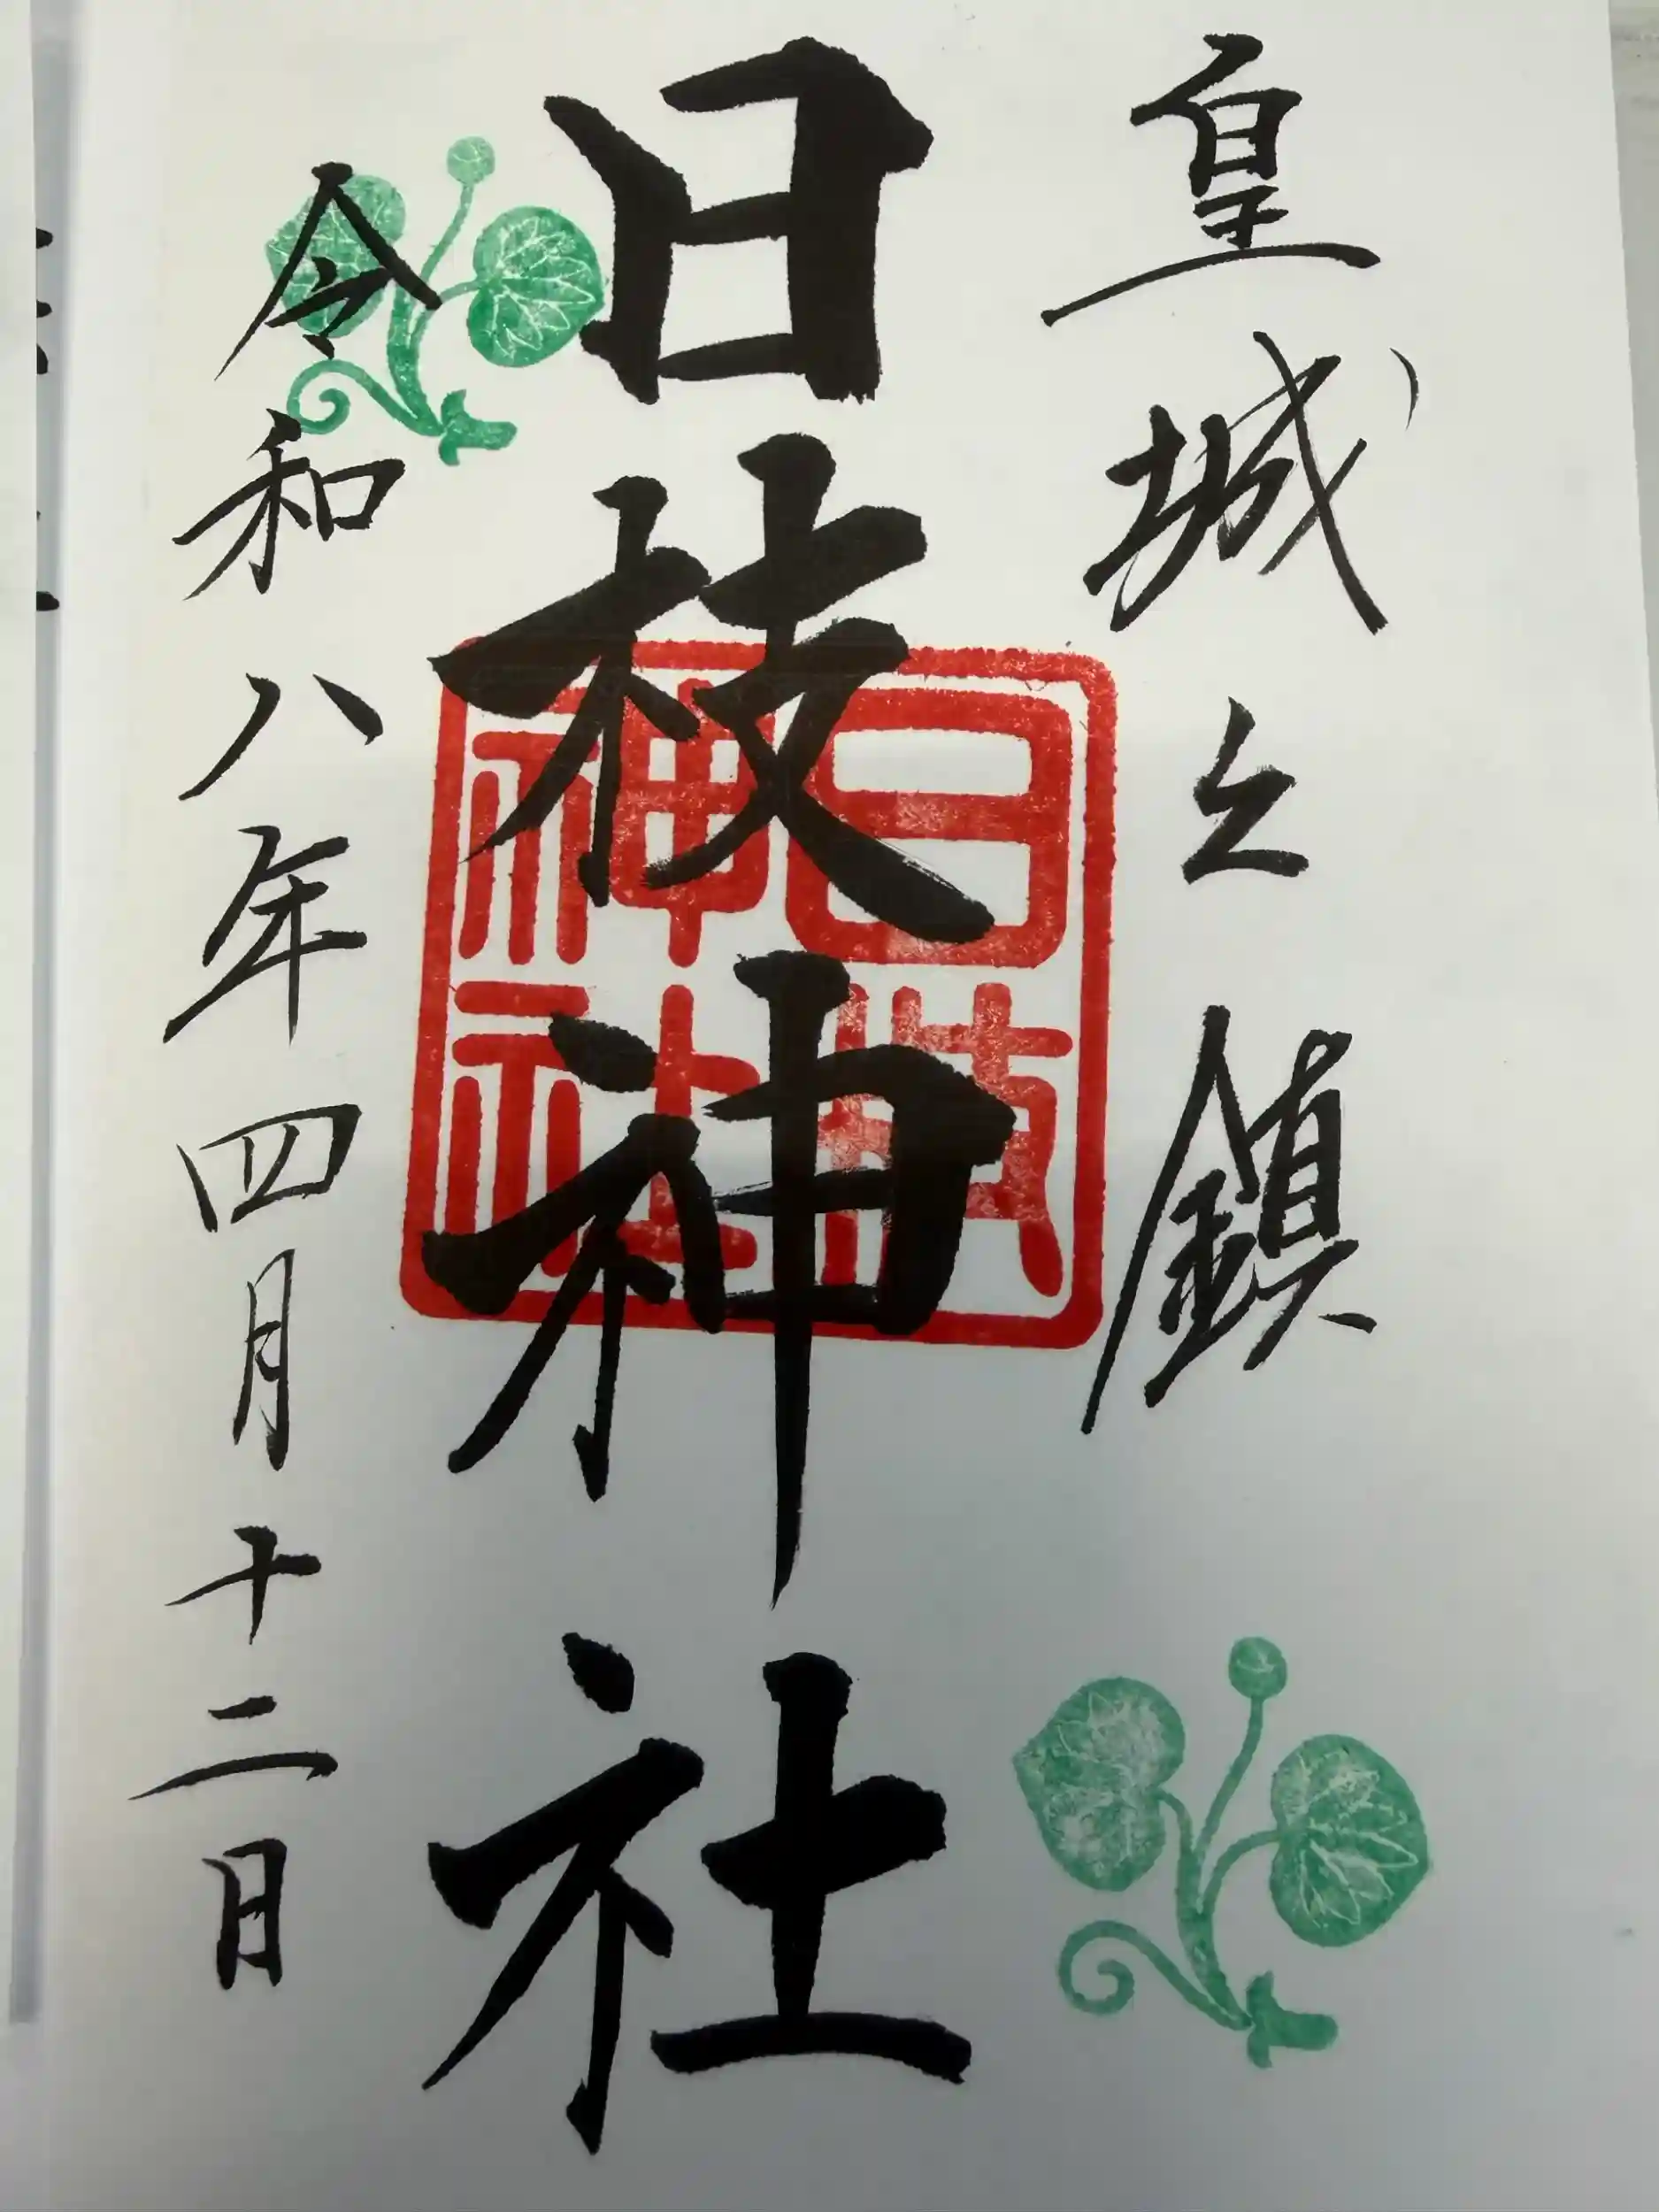 皇城之鎮
日枝神社
日枝神社
令和八年四月十二日